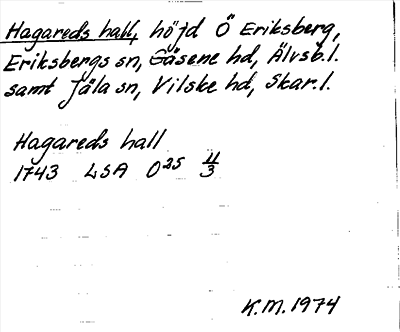 Hagareds hall, höjd Ö Eriksberg,
Eriksbergs sn, Gäsene hd, Älvsb.l.
samt Jäla sn, Vilske hd, Skar.l.
Hagareds hall
1743 LSA O25 4/3
K.M. 1974